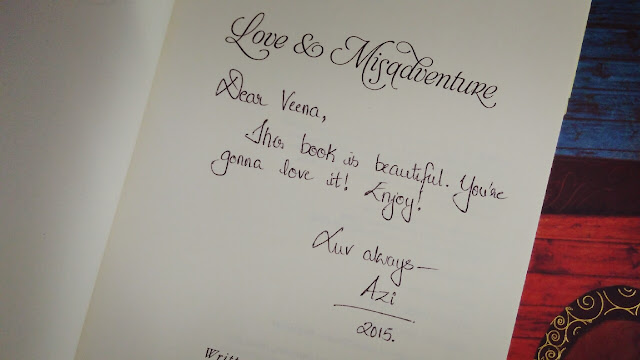 Love & Misadventure
Dear Veena,
This book is beautiful. You're
gonna love it! Enjoy!
Luv always—
Azi
2015.